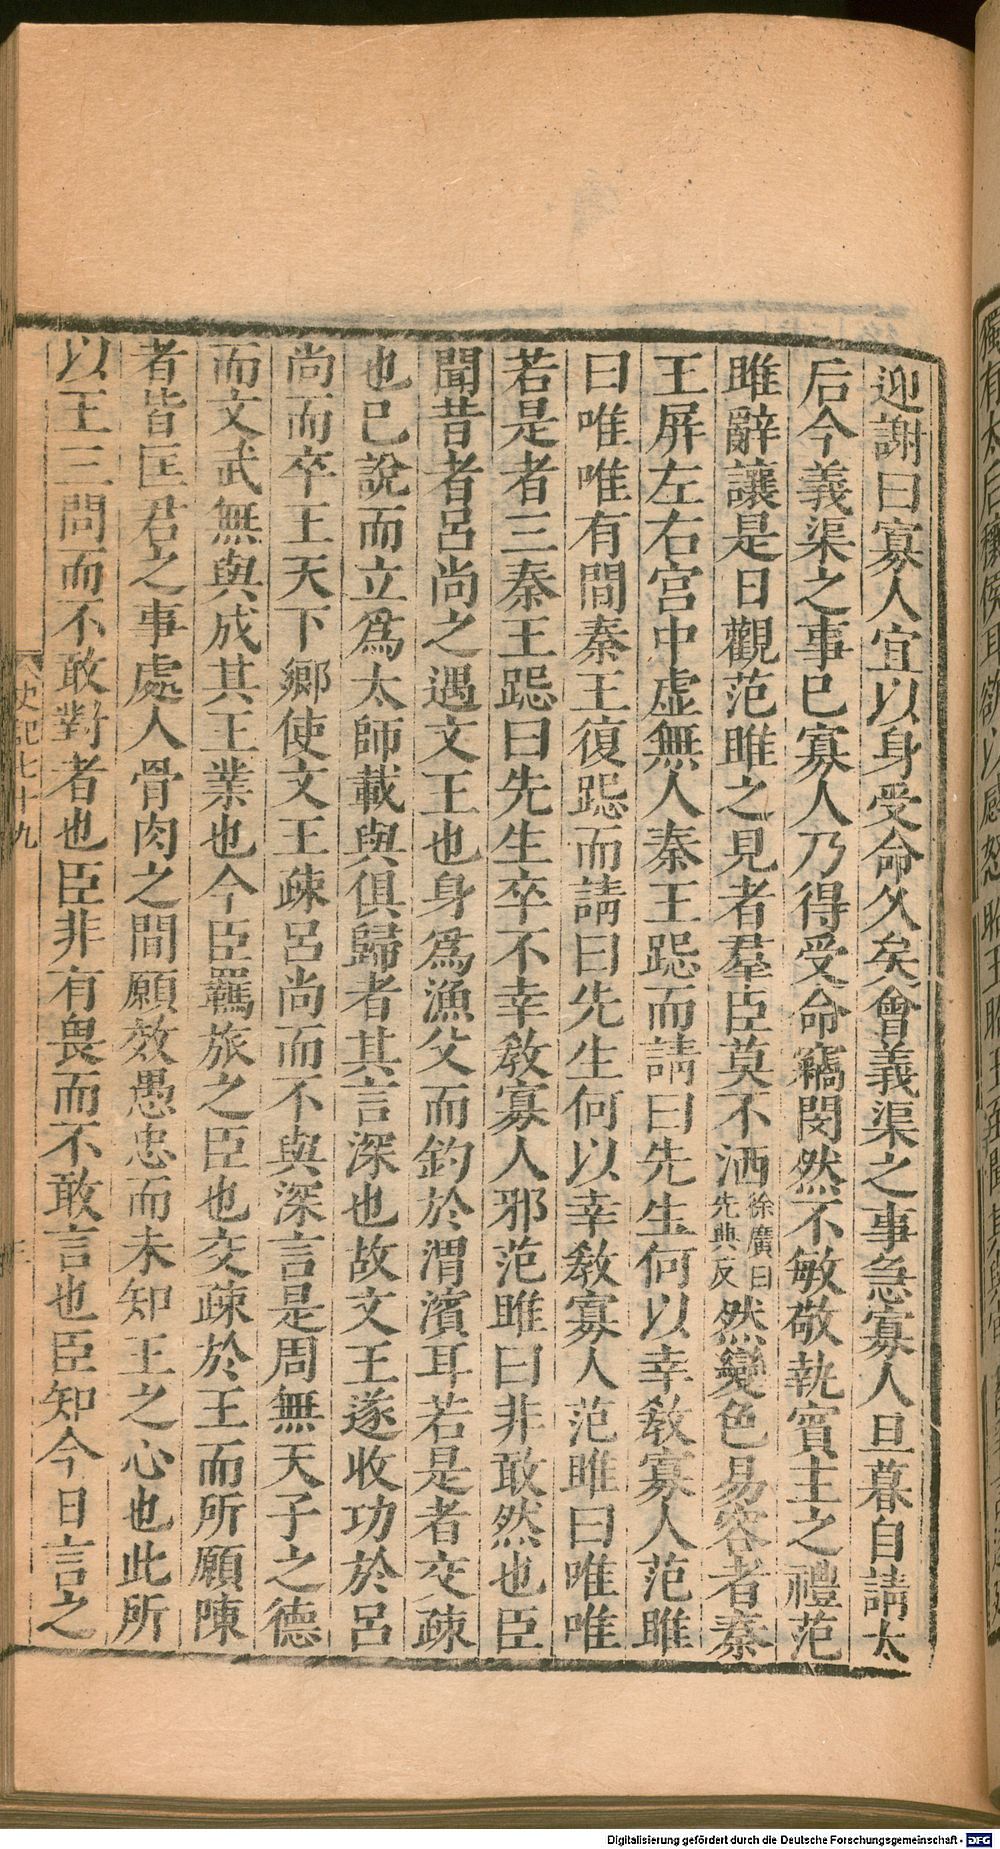 迎謝曰寡人宜以身受命久矣會義渠之事急寡人旦暮自請太
后今義渠之事已寡人乃得受命竊閔然不敏敬執賓主之禮范
雎辭讓是日觀范雎之見者羣臣莫不洒徐廣曰先典反然變色易容者秦
王屏左右宫中虚無人秦王跽而請曰先生何以幸敎寡人范雎
曰唯唯有間秦王復跽而請曰先生何以幸敎寡人范雎曰唯唯
若是者三秦王跽曰先生卒不幸敎寡人邪范雎曰非敢然也臣
聞昔者呂尚之遇文王也身爲漁父而釣於渭濱耳若是者交疎
也已說而立爲太師載與俱歸者其言深也故文王遂收功於呂
尚而卒王天下鄉使文王疎呂尚而不與深言是周無天子之德
而文武無與成其王業也今臣羈旅之臣也交疎於王而所願陳
者皆匡君之事處人骨肉之間願效愚忠而未知王之心也此所
以王三問而不敢對者也臣非有畏而不敢言也臣知今日言之
史記七十九
Digitalisierung gefördert durch die Deutsche Forschungsgemeinschaft - DFG